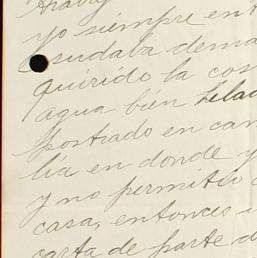 yo siempre en
sudaba dema
querido la cos
agua bien hela
postrado en cam
lia en donde y
y no permitió
casa, entonces
carta de parte d